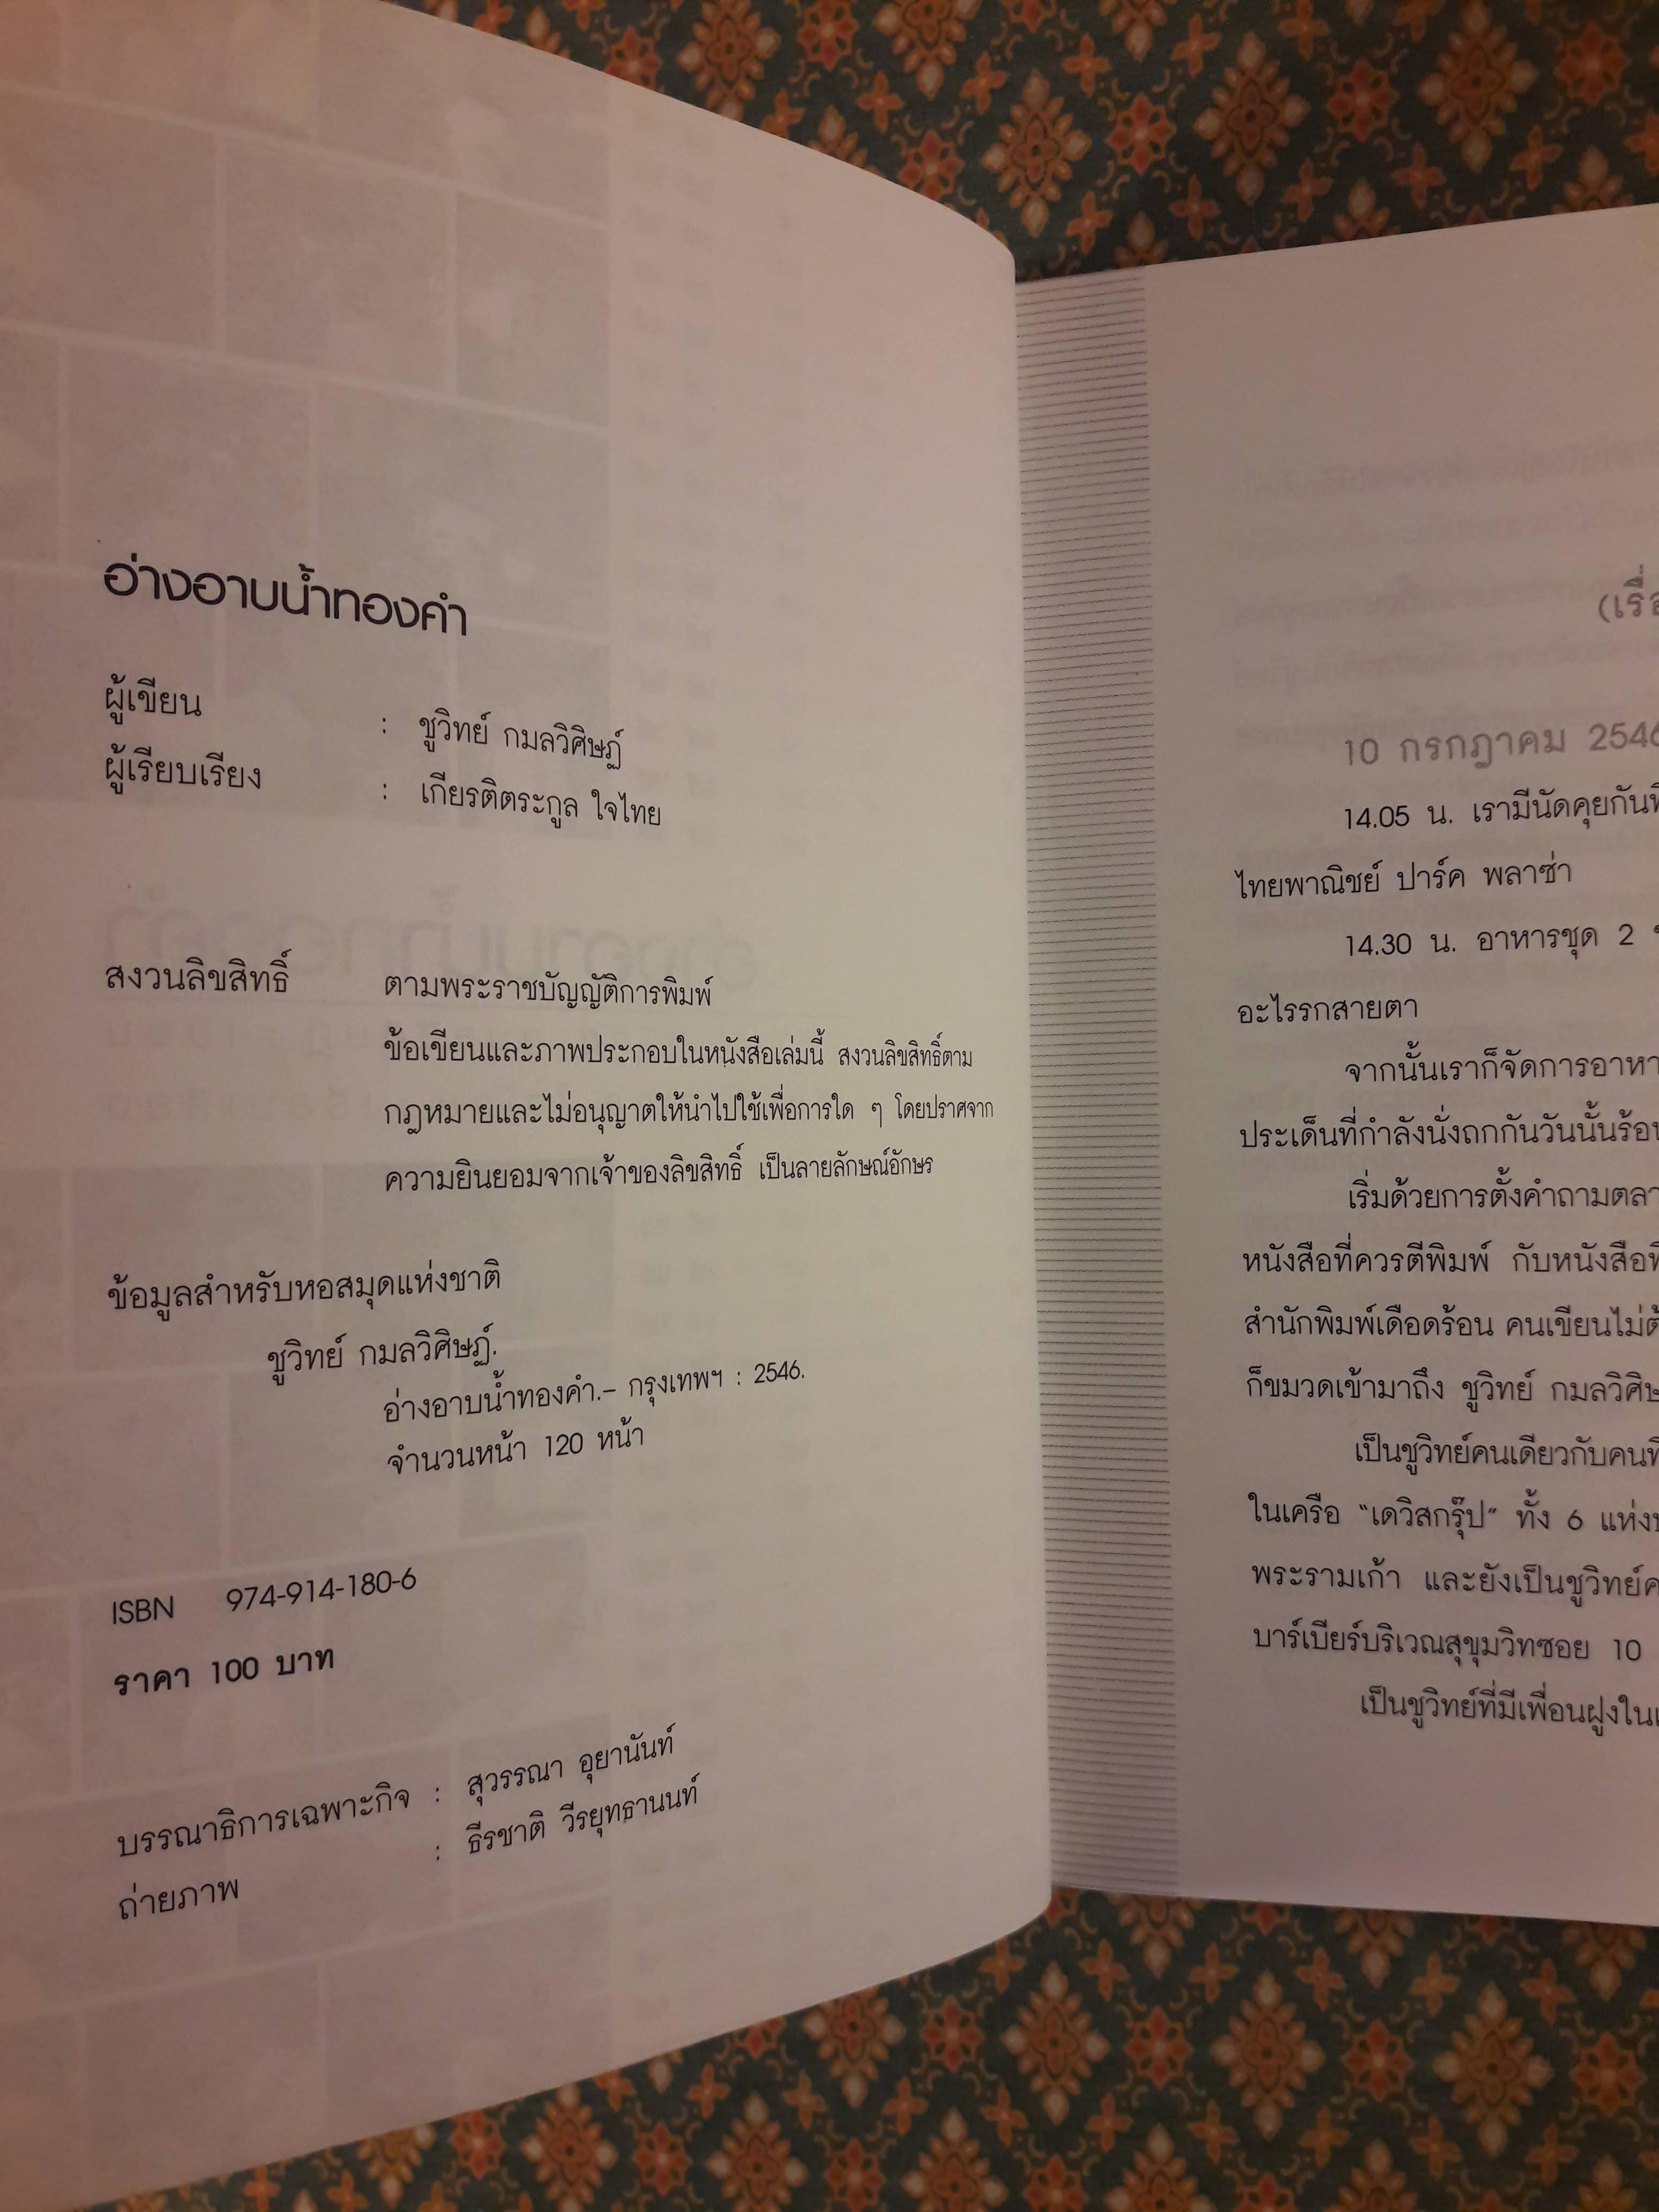 อ่างอาบน้ำทองคำ
ผู้เขียน : ชูวิทย์ กมลวิศิษฏ์
ผู้เรียบเรียง : เกียรติตระกูล ใจไทย
สงวนลิขสิทธิ์ ตามพระราชบัญญัติการพิมพ์
ข้อเขียนและภาพประกอบในหนังสือเล่มนี้ สงวนลิขสิทธิ์ตาม
กฎหมายและไม่อนุญาตให้นำไปใช้เพื่อการใด ๆ โดยปราศจาก
ความยินยอมจากเจ้าของลิขสิทธิ์ เป็นลายลักษณ์อักษร
ข้อมูลสำหรับหอสมุดแห่งชาติ
ชูวิทย์ กมลวิศิษฏ์.
อ่างอาบน้ำทองคำ.– กรุงเทพฯ : 2546.
จำนวนหน้า 120 หน้า
ISBN 974-914-180-6
ราคา 100 บาท
บรรณาธิการเฉพาะกิจ : สุวรรณา อุยานันท์
ถ่ายภาพ : ธีรชาติ วีรยุทธานนท์
10 กรกฎาคม 2546
14.05 น. เรามีนัดคุยกัน
ไทยพาณิชย์ ปาร์ค พลาซ่า
14.30 น. อาหารชุด 2
อะไรรกสายตา
จากนั้นเราก็จัดการอาหา
ประเด็นที่กำลังนั่งถกกันวันนั้นร้อน
เริ่มด้วยการตั้งคำถามตลา
หนังสือที่ควรตีพิมพ์ กับหนังสือ
สำนักพิมพ์เดือดร้อน คนเขียนไม่
ก็ขมวดเข้ามาถึง ชูวิทย์ กมลวิศิษ
เป็นชูวิทย์คนเดียวกับคน
ในเครือ “เดวิสกรุ๊ป” ทั้ง 6 แห่ง
พระรามเก้า และยังเป็นชูวิทย์
บาร์เบียร์บริเวณสุขุมวิทซอย 10
เป็นชูวิทย์ที่มีเพื่อนฝูงใน